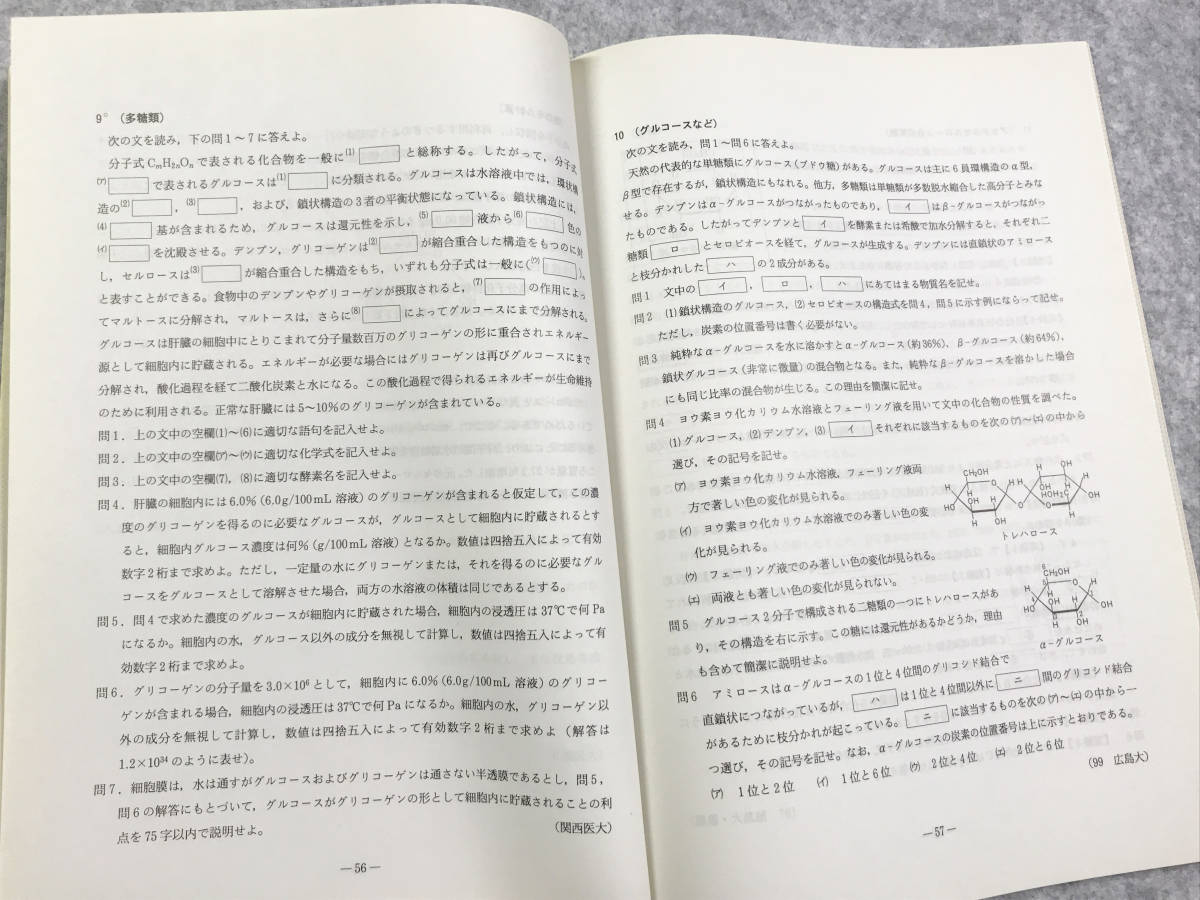 9° (多糖類)
次の文を読み,下の問1〜7に答えよ。
分子式CmH2nOnで表される化合物を一般に(1) と総称する。したがって,分子式
(ア) で表されるグルコースは(1) に分類される。グルコースは水溶液中では,環状構
造の(2) ,(3) ,および,鎖状構造の3者の平衡状態になっている。鎖状構造には,
(4) 基が含まれるため,グルコースは還元性を示し,(5) 液から(6) 色の
(イ) を沈殿させる。デンプン,グリコーゲンは(2) が縮合重合した構造をもつのに対
し,セルロースは(3) が縮合重合した構造をもち,いずれも分子式は一般に(ウ) )n
と表すことができる。食物中のデンプンやグリコーゲンが摂取されると,(7) の作用によっ
てマルトースに分解され,マルトースは,さらに(8) によってグルコースにまで分解される。
グルコースは肝臓の細胞中にとりこまれて分子量数百万のグリコーゲンの形に重合されエネルギー
源として細胞内に貯蔵される。エネルギーが必要な場合にはグリコーゲンは再びグルコースにまで
分解され,酸化過程を経て二酸化炭素と水になる。この酸化過程で得られるエネルギーが生命維持
のために利用される。正常な肝臓には5〜10%のグリコーゲンが含まれている。
問1.上の文中の空欄(1)〜(6)に適切な語句を記入せよ。
問2.上の文中の空欄(ア)〜(ウ)に適切な化学式を記入せよ。
問3.上の文中の空欄(7),(8)に適切な酵素名を記入せよ。
問4.肝臓の細胞内には6.0%(6.0g/100mL 溶液)のグリコーゲンが含まれると仮定して,この濃
度のグリコーゲンを得るのに必要なグルコースが,グルコースとして細胞内に貯蔵されるとす
ると,細胞内グルコース濃度は何%(g/100mL 溶液)となるか。数値は四捨五入によって有効
数字2桁まで求めよ。ただし,一定量の水にグリコーゲンまたは,それを得るのに必要なグル
コースをグルコースとして溶解させた場合,両方の水溶液の体積は同じであるとする。
問5.問4で求めた濃度のグルコースが細胞内に貯蔵された場合,細胞内の浸透圧は37℃で何Pa
になるか。細胞内の水,グルコース以外の成分を無視して計算し,数値は四捨五入によって有
効数字2桁まで求めよ。
問6.グリコーゲンの分子量を3.0×10⁶として,細胞内に6.0%(6.0g/100mL 溶液)のグリコー
ゲンが含まれる場合,細胞内の浸透圧は37℃で何Paになるか。細胞内の水,グリコーゲン以
外の成分を無視して計算し,数値は四捨五入によって有効数字2桁まで求めよ(解答は
1.2×10³⁴のように表せ)。
問7.細胞膜は,水は通すがグルコースおよびグリコーゲンは通さない半透膜であるとし,問5,
問6の解答にもとづいて,グルコースがグリコーゲンの形として細胞内に貯蔵されることの利
点を75字以内で説明せよ。 (関西医大)
—56—
10 (グルコースなど)
次の文を読み,問1〜問6に答えよ。
天然の代表的な単糖類にグルコース(ブドウ糖)がある。グルコースは主に6員環構造のα型,
β型で存在するが,鎖状構造にもなれる。他方,多糖類は単糖類が多数脱水縮合した高分子とみな
せる。デンプンはα-グルコースがつながったものであり, イ はβ-グルコースがつながっ
たものである。したがってデンプンと イ を酵素または希酸で加水分解すると,それぞれ二
糖類 ロ とセロビオースを経て,グルコースが生成する。デンプンには直鎖状のアミロース
と枝分かれした ハ の2成分がある。
問1 文中の イ , ロ , ハ にあてはまる物質名を記せ。
問2 (1)鎖状構造のグルコース,(2)セロビオースの構造式を問4,問5に示す例にならって記せ。
ただし,炭素の位置番号は書く必要がない。
問3 純粋なα-グルコースを水に溶かすとα-グルコース(約36%),β-グルコース(約64%),
鎖状グルコース(非常に微量)の混合物となる。また,純粋なβ-グルコースを溶かした場合
にも同じ比率の混合物が生じる。この理由を簡潔に記せ。
問4 ヨウ素ヨウ化カリウム水溶液とフェーリング液を用いて文中の化合物の性質を調べた。
(1)グルコース,(2)デンプン,(3) イ それぞれに該当するものを次の(ア)〜(エ)の中から
選び,その記号を記せ。
(ア) ヨウ素ヨウ化カリウム水溶液,フェーリング液両
方で著しい色の変化が見られる。
(イ) ヨウ素ヨウ化カリウム水溶液でのみ著しい色の変
化が見られる。
(ウ) フェーリング液でのみ著しい色の変化が見られる。
(エ) 両液とも著しい色の変化が見られない。
トレハロース
問5 グルコース2分子で構成される二糖類の一つにトレハロースがあ
り,その構造を右に示す。この糖には還元性があるかどうか,理由
も含めて簡潔に説明せよ。
α-グルコース
問6 アミロースはα-グルコースの1位と4位間のグリコシド結合で
直鎖状につながっているが, ハ は1位と4位間以外に ニ 間のグリコシド結合
があるために枝分かれが起こっている。 ニ に該当するものを次の(ア)〜(エ)の中から一
つ選び,その記号を記せ。なお,α-グルコースの炭素の位置番号は上に示すとおりである。
(ア) 1位と2位 (イ) 1位と6位 (ウ) 2位と4位 (エ) 2位と6位
(99 広島大)
—57—